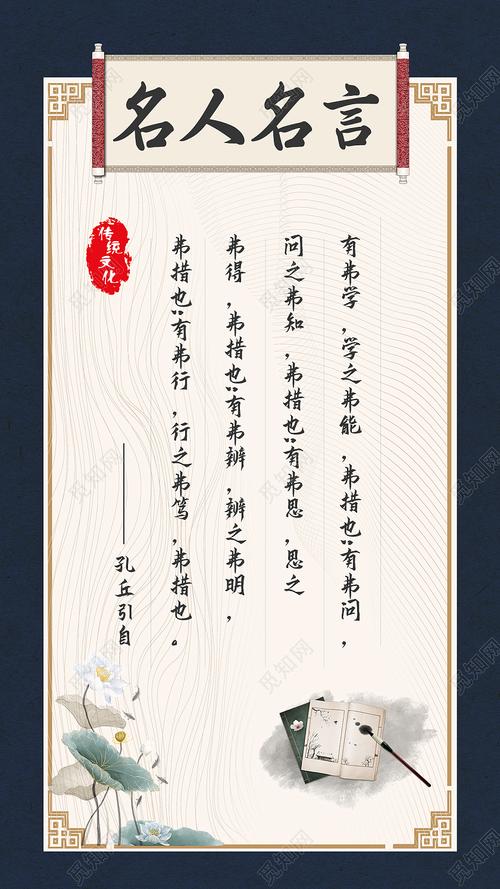 名人名言
有弗学，学之弗能，弗措也；有弗问，
问之弗知，弗措也；有弗思，思之
弗得，弗措也；有弗辨，辨之弗明，
弗措也；有弗行，行之弗笃，弗措也。
——孔丘引自
传统
文化
觅知网